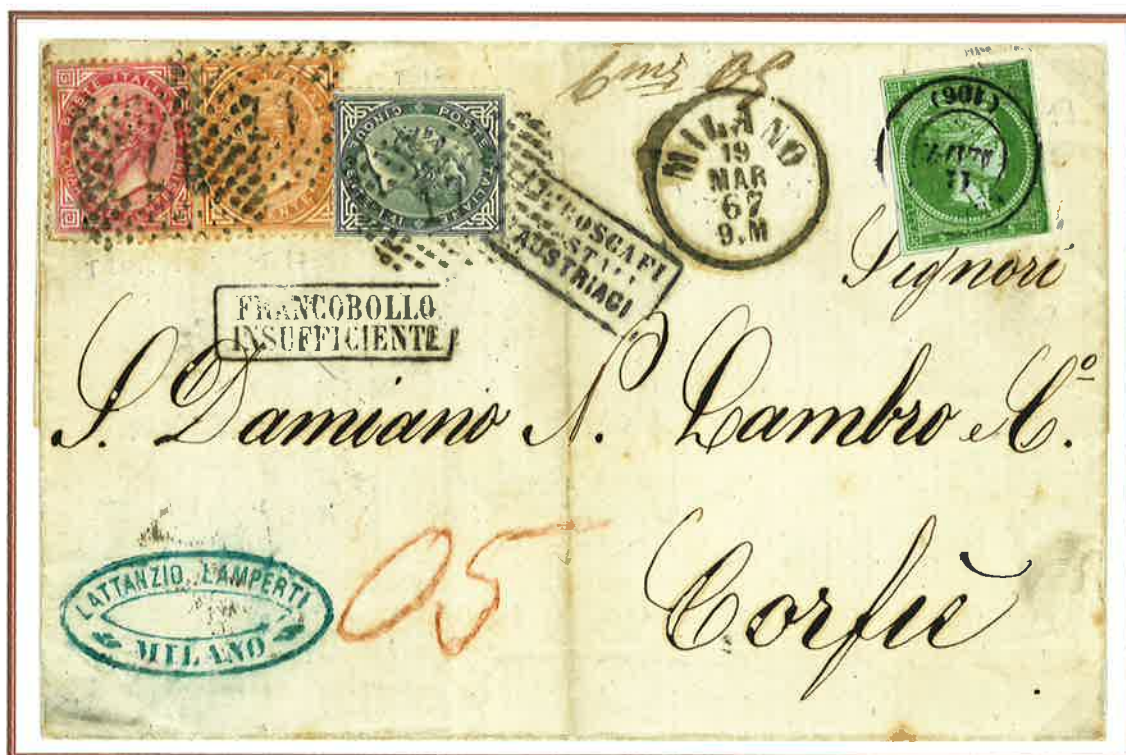 POSTE ITALIANE
CINQUE POSTE ITALIANE
MILANO
19
MAR
67
9.M
(106)
11
PIROSCAFI
AUSTRIACI
FRANCOBOLLO
INSUFFICIENTE
Signori
S. Damiano N. Lambro & Cº.
05
Corfù
LATTANZIO LAMPERTI
MILANO